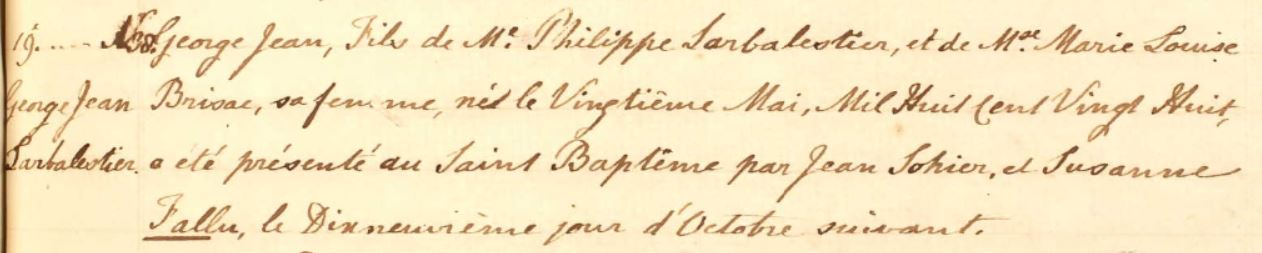 19. .... No 38. George Jean, Fils de Mr. Philippe Larbalestier, et de Mde. Marie Louise
George Jean Brisac, sa femme, né le Vingtième Mai, Mil Huit Cent Vingt Huit,
Larbalestier. a été présenté au Saint Baptême par Jean Sohier, et Susanne
Fallu, le Dixneuvième jour d'Octobre suivant.